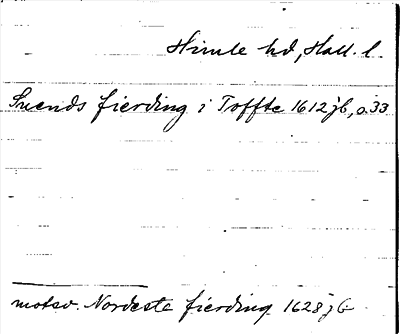 Himle hd, Hall. l
Suends fierding i Toffte 1612 jb, s. 33
motsv. Nordeste fierding 1628 jb